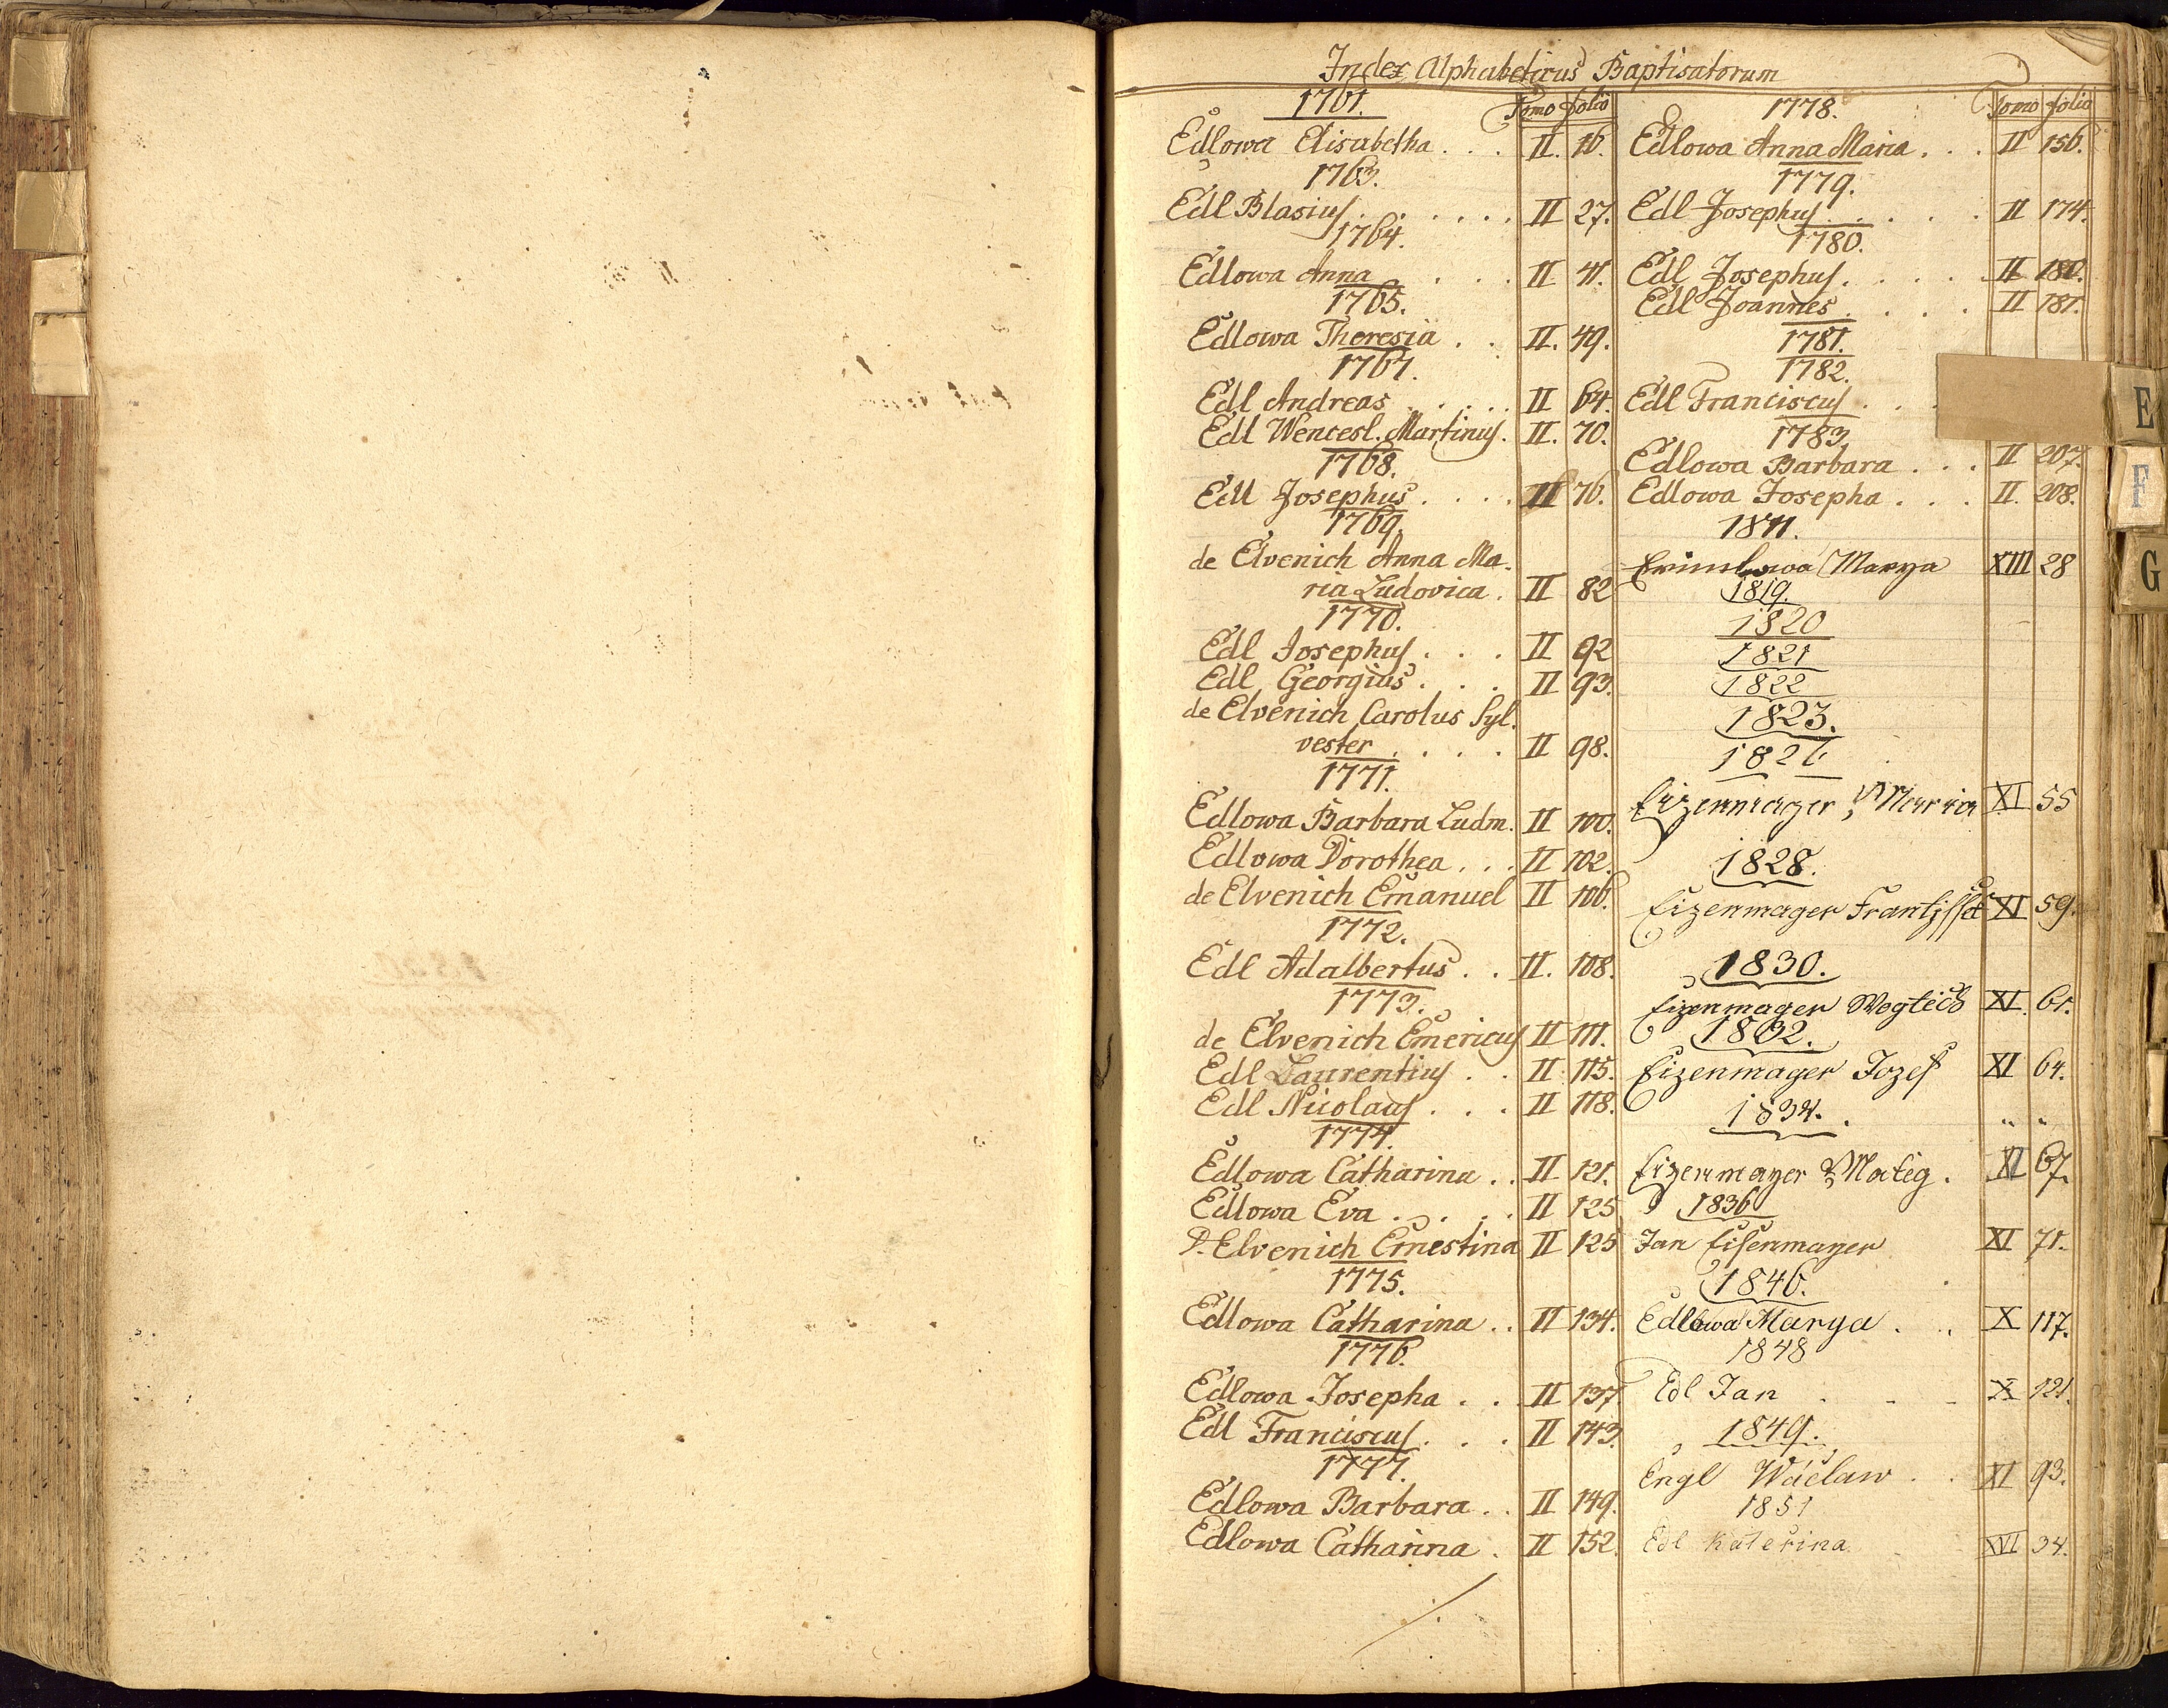 Index Alphabeticus Baptisatorum
1761. Tomo folio
Edlowa Elisabetha . . . II. 16.
1763.
Edl Blasius . . . . . . II 27.
1764.
Edlowa Anna . . . II 41.
1765.
Edlowa Theresia . . II. 49.
1767.
Edl Andreas . . . . . II 64.
Edl Wencesl. Martinus. II. 70.
1768.
Edl Josephus . . . . II 76.
1769.
de Elvenich Anna Ma-
ria Ludovica . II 82
1770.
Edl Josephus . . . II 92
Edl Georgius . . . II 93.
de Elvenich Carolus Syl-
vester . . . . II 98.
1771.
Edlowa Barbara Ludm. II 100.
Edlowa Dorothea . . . II 102.
de Elvenich Emanuel II 106.
1772.
Edl Adalbertus . . II. 108.
1773.
de Elvenich Emericus II 111.
Edl Laurentius . . II 115.
Edl Nicolaus . . . II 118.
1774.
Edlowa Catharina . . II 121.
Edlowa Eva . . . . . II 125
D. Elvenich Ernestina II 125
1775.
Edlowa Catharina . . II 134.
1776.
Edlowa Josepha . . II 137
Edl Franciscus . . . II 143.
1777.
Edlowa Barbara . . II 149.
Edlowa Catharina . II 152.
1778. Tomo folio
Edlowa Anna Maria . . . II 156.
1779.
Edl Josephus . . . . . II 174.
1780.
Edl Josephus . . . . II 180.
Edl Joannes . . . . II 181.
1781.
1782.
Edl Franciscus . . .
1783.
Edlowa Barbara . . . II 207.
Edlowa Josepha . . . II. 208.
1811.
Marya XIII 28
1819.
1820
1821
1822
1823.
1826
Eizenmayer Marria XI 55
1828.
Eizenmayer XI 59.
1830.
Eizenmayer Wogtěch XI. 61.
1832.
Eizenmayer Jozef XI 64.
1834. . „ „
Eizenmayer Matěg . XI 67.
1836
Jan Eisenmayer XI 71.
1846.
Edlowa Marya . . X 117.
1848
Edl Jan . - - X 121.
1849.
Engl Wáclaw . . XI 93.
1851
Edl Kateřina XVI 34.
E
F
G